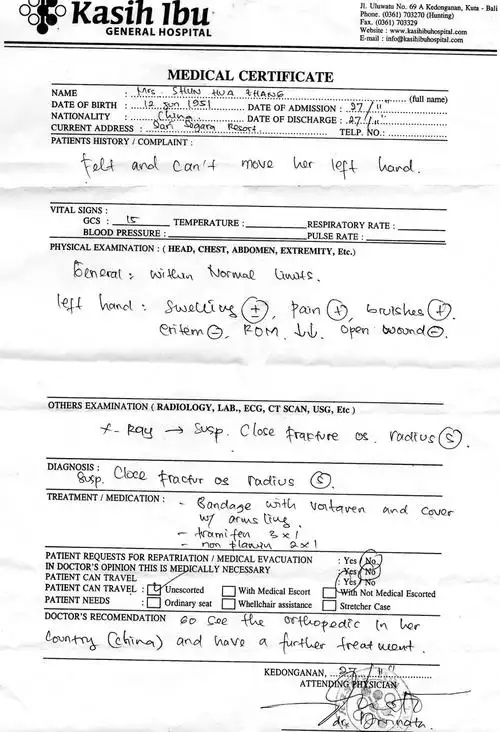 Kasih Ibu
GENERAL HOSPITAL
Jl. Uluwatu No. 69 A Kedonganan, Kuta - Bali
Phone. (0361) 703270 (Hunting)
Fax. (0361) 703329
Website : www.kasihibuhospital.com
E-mail : info@kasihibuhospital.com
MEDICAL CERTIFICATE
NAME : Mrs. SHUN HUA ZHANG (full name)
DATE OF BIRTH : 12 Jun 1951 DATE OF ADMISSION : 27/11
NATIONALITY : China DATE OF DISCHARGE : 27/11
CURRENT ADDRESS : Segara Resort TELP. NO.:
PATIENTS HISTORY / COMPLAINT :
Felt and can't move her left hand.
VITAL SIGNS :
GCS : 15 TEMPERATURE : RESPIRATORY RATE :
BLOOD PRESSURE : PULSE RATE :
PHYSICAL EXAMINATION : ( HEAD, CHEST, ABDOMEN, EXTREMITY, Etc.)
General : within Normal limits.
left hand : Swelling (±), pain (+), bruishes (+).
eritem (-), ROM ↓↓. open wound (-).
OTHERS EXAMINATION ( RADIOLOGY, LAB., ECG, CT SCAN, USG, Etc )
X-Ray → Susp. Close fracture os. radius (S).
DIAGNOSIS :
Susp. Close fractur os radius (S).
TREATMENT / MEDICATION : - Bandage with voltaren and cover
w/ armsling.
- tramifen 3x1
- 2x1
PATIENT REQUESTS FOR REPATRIATION / MEDICAL EVACUATION : Yes / No
IN DOCTOR'S OPINION THIS IS MEDICALLY NECESSARY : Yes / No
PATIENT CAN TRAVEL : Yes / No
PATIENT CAN TRAVEL : Unescorted With Medical Escort With Not Medical Escorted
PATIENT NEEDS : Ordinary seat Whellchair assistance Stretcher Case
DOCTOR'S RECOMENDATION go see the orthopedic in her
Country (China) and have a further treatment.
KEDONGANAN, 27/11
ATTENDING PHYSICIAN
dr.